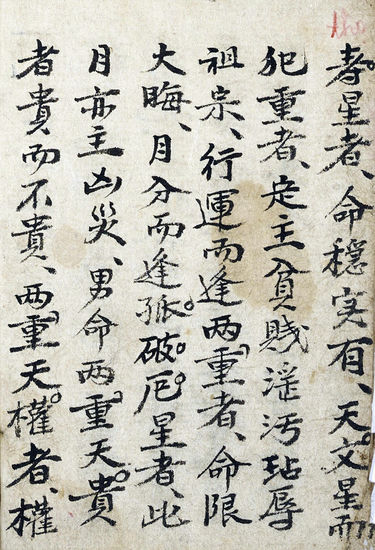 孝星者、命穩寔有、天文星而
犯重者、定主貧賤滛污玷辱
祖宗、行運而逢两重者、命限
大晦、月分而逢孤破厄星者、此
月亦主凶災、男命两重天貴
者貴而不貴、两重天權者、權